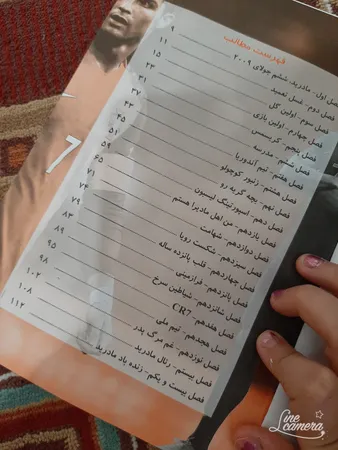 فهرست مطالب
فصل اول- مادرید، ششم جولای ۲۰۰۹ ۹
فصل دوم- غسل تعمید ۱۱
فصل سوم- اولین گل ۱۵
فصل چهارم- اولین بازی ۲۳
فصل پنجم- کریسمس ۳۱
فصل ششم- مدرسه ۳۷
فصل هفتم- تیم آندورینا ۴۳
فصل هشتم- زنبور کوچولو ۴۵
فصل نهم- بچه گربه رو ۵۱
فصل دهم- اسپورتینگ لیسبون ۵۹
فصل یازدهم- من اهل مادیرا هستم ۶۵
فصل دوازدهم- شهامت ۷۱
فصل سیزدهم- شکست رویا ۷۴
فصل چهاردهم- قلب پانزده ساله ۷۹
فصل پانزدهم- فرازمینی ۸۳
فصل شانزدهم- شیاطین سرخ ۸۹
فصل هفدهم- CR7 ۹۵
فصل هجدهم- تیم ملی ۹۸
فصل نوزدهم- غم مرگ پدر ۱۰۲
فصل بیستم- رئال مادرید ۱۰۸
فصل بیست و یکم- زنده باد مادرید ۱۱۲
7
Line camera